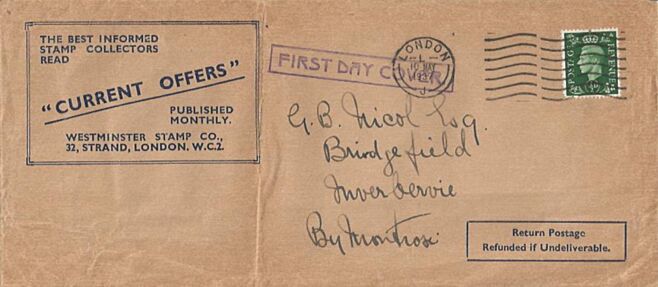 THE BEST INFORMED
STAMP COLLECTORS
READ
"CURRENT OFFERS"
PUBLISHED
MONTHLY.
WESTMINSTER STAMP CO.,
32, STRAND, LONDON. W.C.2.
FIRST DAY COVER
LONDON
1937
POSTAGE
G. B. Nicol Esq.
Bridgefield
Inverbervie
By Montrose
Return Postage
Refunded if Undeliverable.